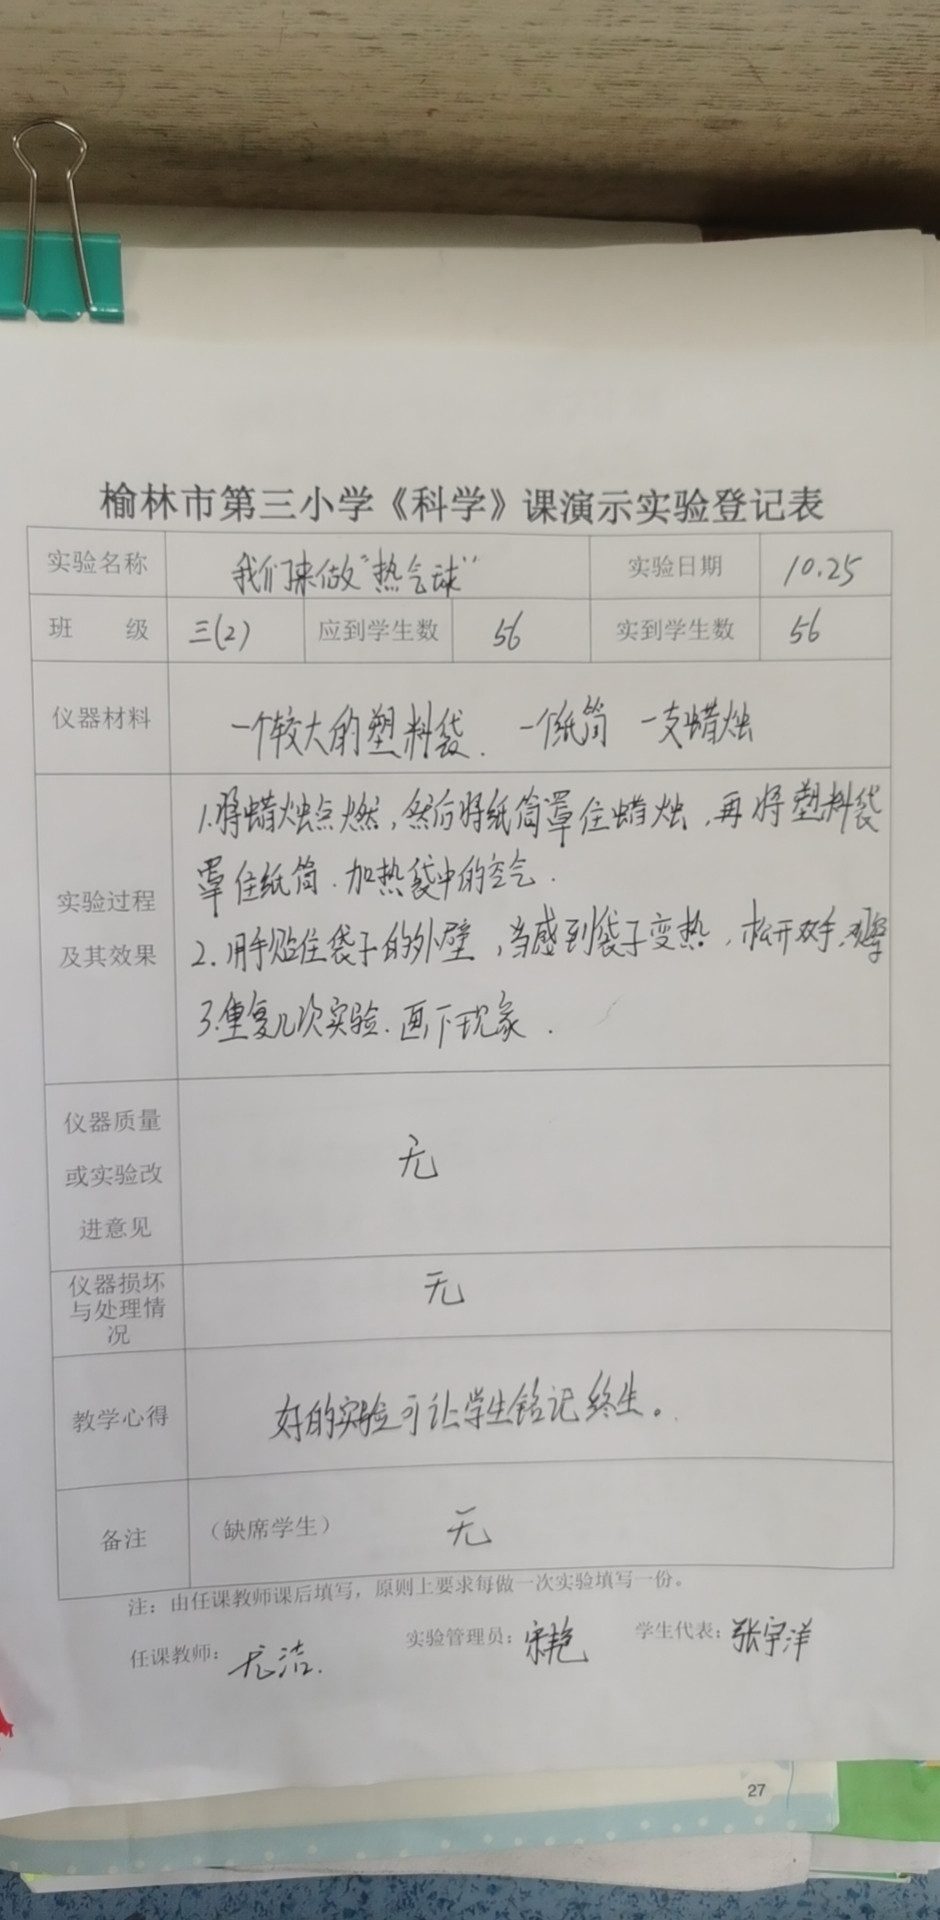 榆林市第三小学《科学》课演示实验登记表
实验名称 我们来做"热气球" 实验日期 10.25
班 级 三(2) 应到学生数 56 实到学生数 56
仪器材料 一个较大的塑料袋. 一个纸筒 一支蜡烛
实验过程及其效果
1.将蜡烛点燃,然后将纸筒罩住蜡烛,再将塑料袋
罩住纸筒.加热袋中的空气.
2.用手贴住袋子的外壁,当感到袋子变热,松开双手.观察
3.重复几次实验.画下现象.
仪器质量
或实验改
进意见
无
仪器损坏
与处理情
况
无
教学心得 好的实验可让学生铭记终生。
备注 (缺席学生) 无
注：由任课教师课后填写，原则上要求每做一次实验填写一份。
任课教师: 尤洁. 实验管理员: 宋艳 学生代表: 张宇洋
27